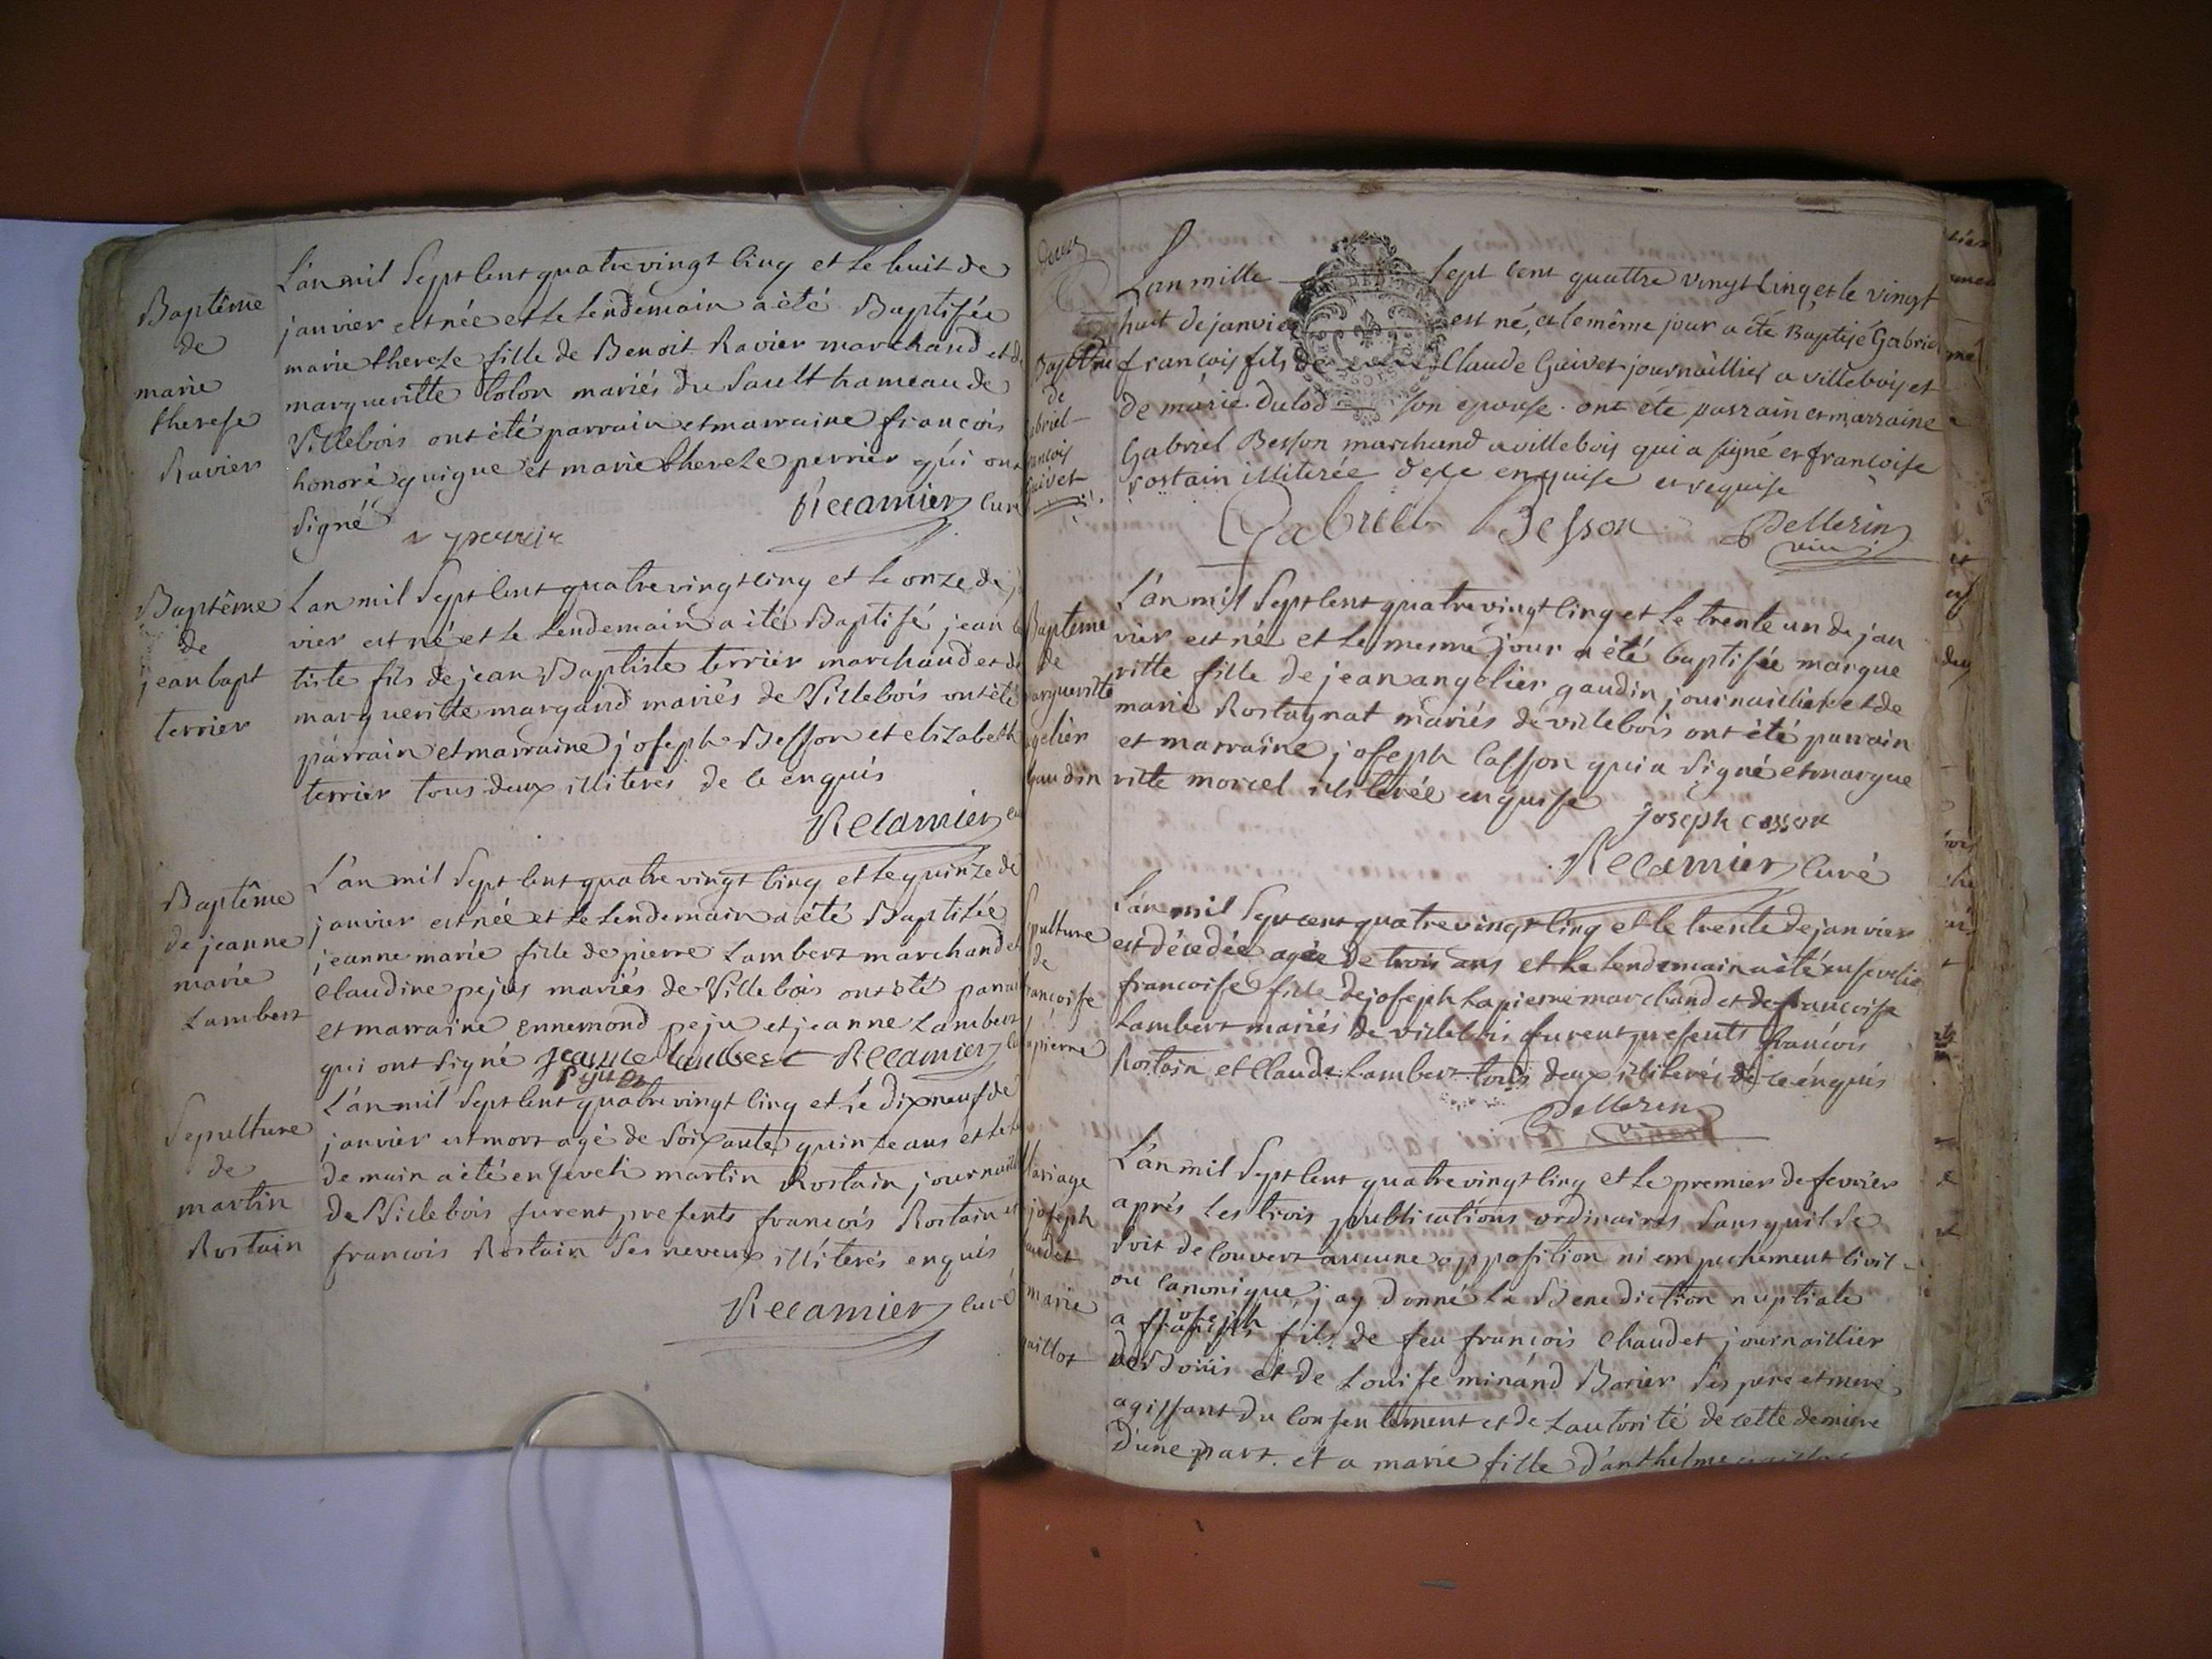 Baptême
de
marie
therese
Ravier
L'an mil Sept Cent quatre vingt Cinq et le huit de
janvier est née et le lendemain a été Baptisée
marie thereze fille de Benoit Ravier marchand et de
margueritte Colon mariés du Sault hameau de
Villebois ont été parrain et marraine françois
honoré guigue et marie thereze perrier qui ont
signé
Recamier Curé
Baptême
de
jean bapt
terrier
L'an mil Sept Cent quatre vingt Cinq et le onze de j
vier est né et le Lendemain a été Baptisé jean b
tiste fils de jean Baptiste terrier marchand et de
margueritte margand mariés de Villebois ont été
parrain et marraine joseph Besson et elizabeth
terrier tous deux illiterés de ce enquis
Recamier cu
Baptême
de jeanne
marie
Lambert
L'an mil Sept Cent quatre vingt Cinq et le quinze de
janvier est née et le Lendemain a été Baptisée
jeanne marie fille de pierre Lambert marchand et
Claudine pejus mariés de Villebois ont été parrain
et marraine ennemond peju et jeanne Lambert
qui ont signé jeanne lambert Recamier cu
pejus
Sepulture
de
martin
Rostain
L'an mil Sept Cent quatre vingt Cinq et le dix neuf de
janvier est mort agé de Soixante quinze ans et le le
demain a été enseveli martin Rostain journaill
de Villebois furent presents françois Rostain et
francois Rostain ses neveux illiterés enquis
Recamier Curé
Baptême
de
abriel
ancois
Guivet
L'an mille sept cent quattre vingt Cinq et le vingt
huit de janvier est né, et le même jour a été Baptisé Gabriel
francois fils de Claude Guivet journaillier a villebois et
de marie Dulod son epouse. ont été parrain et marraine
Gabriel Besson marchand a villebois qui a signé et francoise
rostain illiterée de ce enquise et requise
Gabriel Besson Pellerin
vic
Baptême
de
argueritte
gelier
Gaudin
L'an mil Sept Cent quatre vingt Cinq et le trente un de jan
vier est née et le mesme jour a été baptisée margue
ritte fille de jean angelier gaudin journaillier et de
marie Rostagnat mariés de villebois ont été parrain
et marraine joseph Casson qui a signé et margue
ritte morcel illiterée enquise
joseph casson
Recamier Curé
pulture
de
rançoise
apierre
L'an mil Sept cent quatre vingt Cinq et le trente de janvier
est décedée agée de trois ans et le lendemain a été ensevelie
francoise fille de joseph Lapierre marchand et de francoise
Lambert mariés de villebois furent presents francois
Rostain et Claude Lambert tous deux illiterés de ce enquis
Pellerin
ariage
joseph
audet
marie
aillot
L'an mil Sept Cent quatre vingt Cinq et le premier de fevrier
aprés les trois publications ordinaires sans quil se
soit de Couvert aucune opposition ni empechement Civil
ou Canonique, j'ay donné la Benediction nuptiale
joseph
a francois fils de feu francois Chaudet journaillier
de Bouis et de Louise minand Barier ses pere et mere
agissant du Consentement et de L'autorité de cette derniere
d'une part. et a marie fille d'anthelme